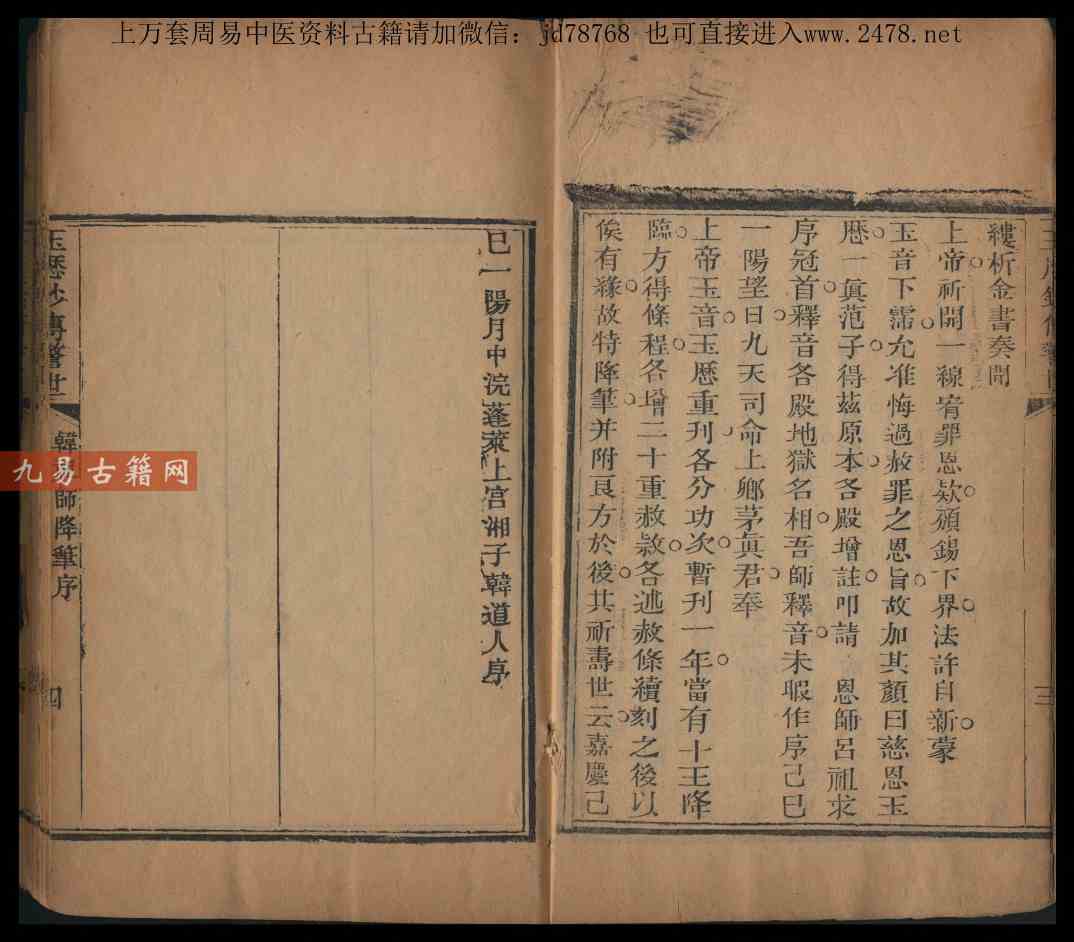 上万套周易中医资料古籍请加微信：jd78768 也可直接进入www.2478.net
縷析金書奏聞
上帝祈開一線宥罪恩欵頒錫下界法許自新蒙
玉音下霈允准悔過赦罪之恩旨故加其顏曰慈恩玉
歴一眞范子得茲原本各殿增註叩請　恩師呂祖求
序冠首釋音各殿地獄名相吾師釋音未暇作序己巳
一陽望日九天司命上鄉茅眞君奉
上帝玉音玉歴重刊各分功次暫刊一年當有十王降
臨方得條程各增二十重赦欵各述赦條續刻之後以
俟有緣故特降筆并附良方於後其祈壽世云嘉慶己
三
巳一陽月中浣蓬萊上宮湘子韓道人序
玉歴鈔傳警世
韓　師降筆序
四
九易古籍网